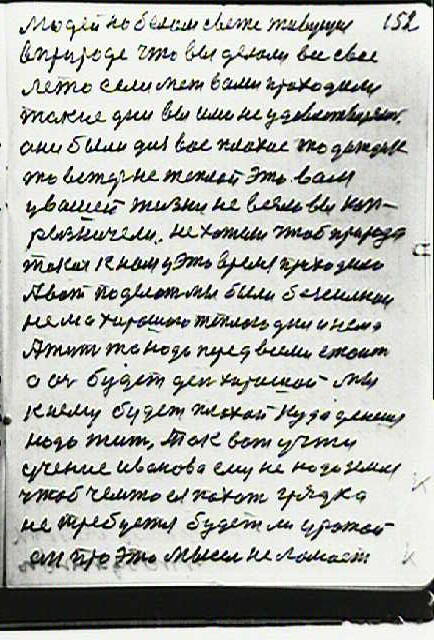 людей на белом свете живущих 152
в природе что вы делали все свое
лето если мет вами проходили
такие дни вы ими не удовлетворены
они были для вас плохие то дождик
то ветер не теплой это вам
у вашей жизни не всем вы кап-
ризничели. не хотели чтоб природа
такая к нам у это время приходила
А вот поделот мы были бессилной
нема хорошого тёплого дня и нема
А жит то надо перед всеми стоит
а он будет ден хорошой мы
к нему будет плохой куда денеш
надо жит, так вот учти
учение иванова ему не надо земля
чтоб чемто ея пахат грядка
не требуется будет ли урожай
он про это мысли не ломает